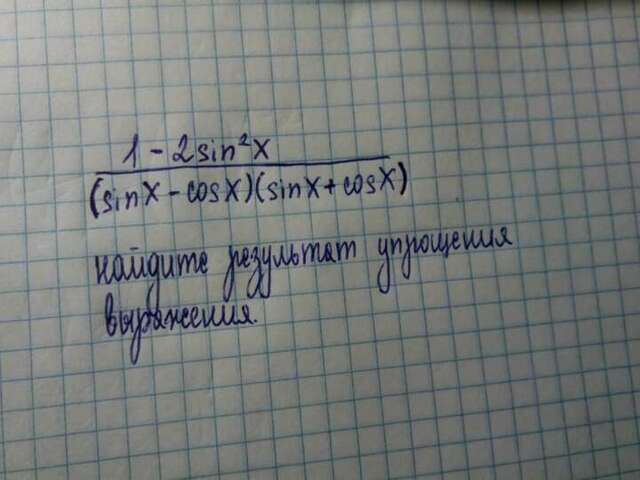 1 - 2sin²x
(sinx - cosx)(sinx + cosx)
найдите результат упрощения
выражения.